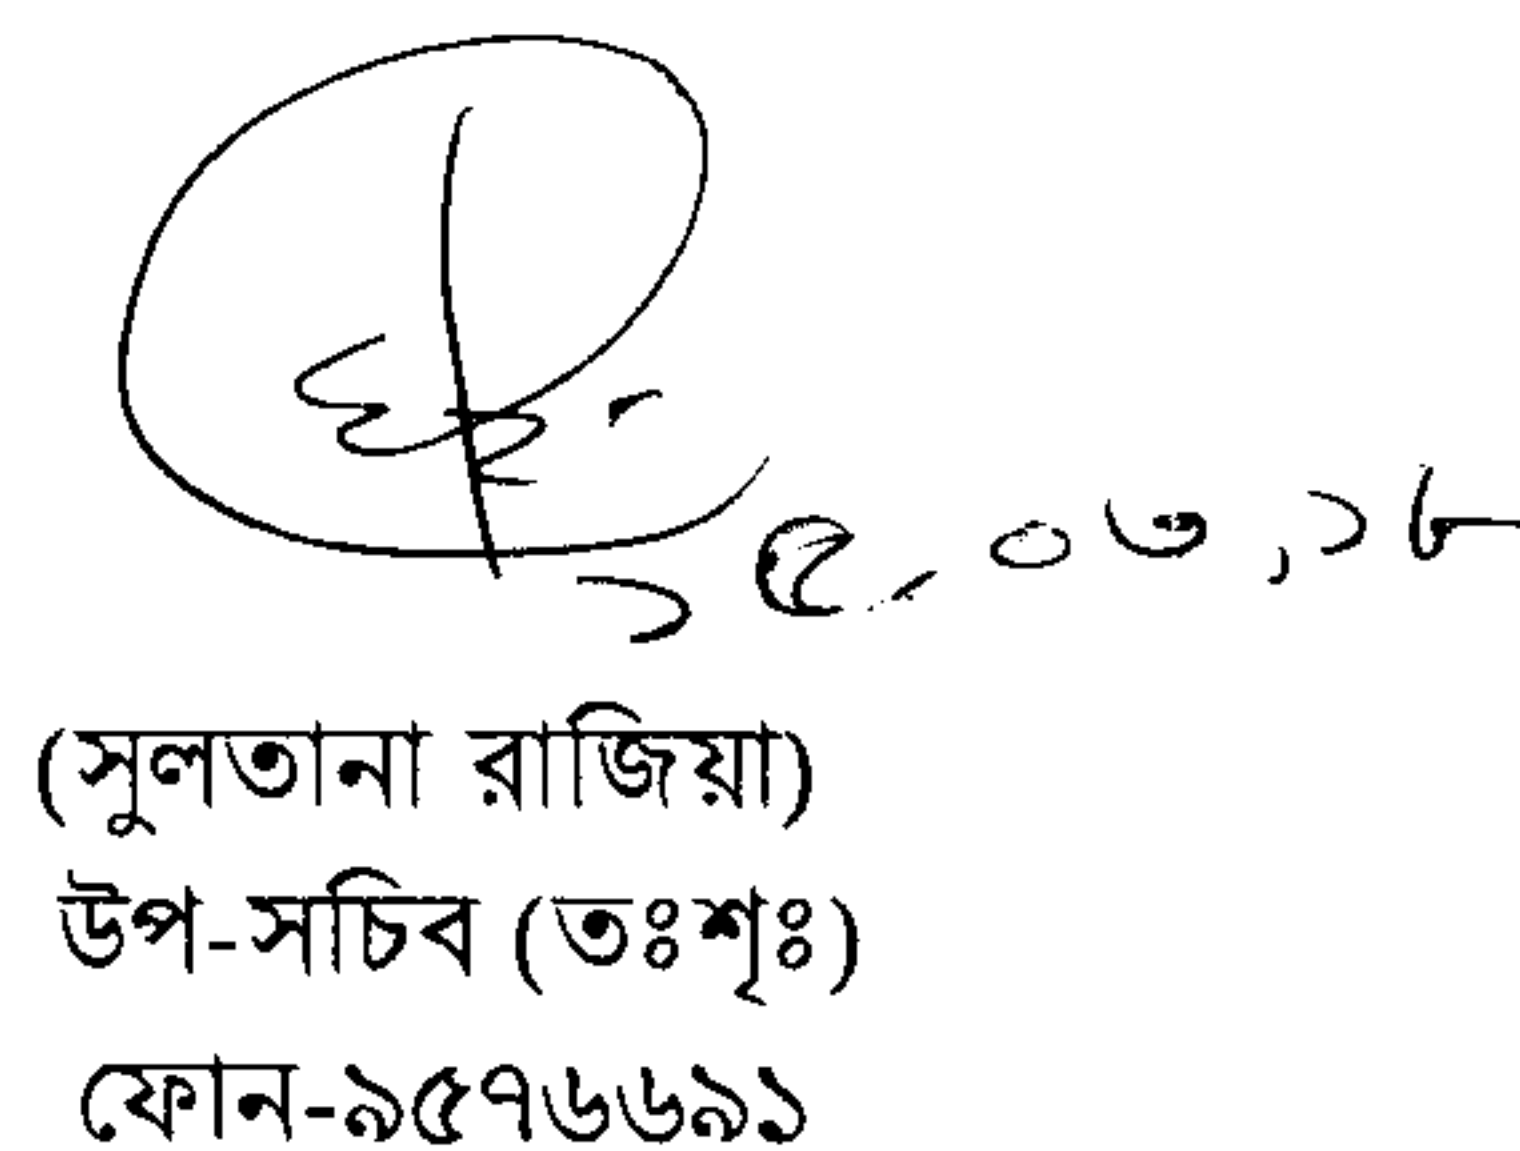 ১৫.০৩.১৮
(সুলতানা রাজিয়া)
উপ-সচিব (তঃশৃঃ)
ফোন-৯৫৭৬৬৯১